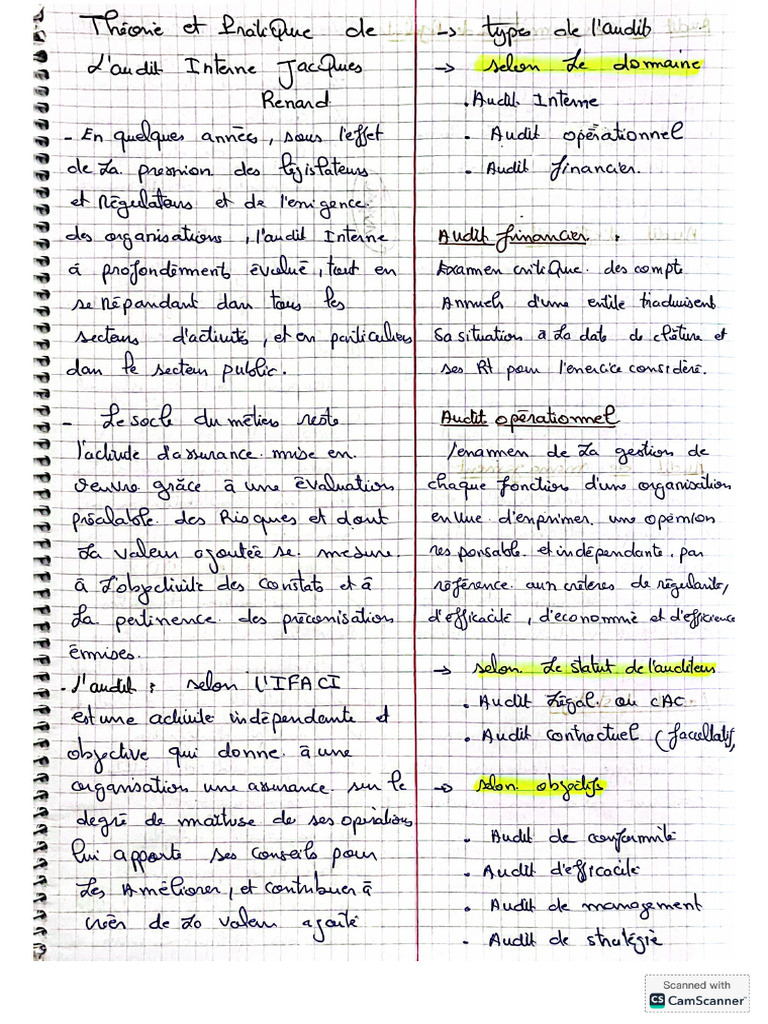 Théorie et Pratique de
L'audit Interne Jacques
Renard
- En quelques années, sous l'effet
de La pression des législateurs
et Régulateurs et de l'exigence
des organisations, l'audit Interne
à profondément évolué, tout en
se répandant dan tous les
secteurs d'activités, et en particuliers
dan le secteur public.
- Le socle du métiers reste
l'activité d'assurance mise en
oeuvre grâce à une évaluation
préalable des Risques et dont
La valeur ajoutée se mesure
à L'objectivité des constats et à
La pertinence des préconisation
émises.
- L'audit : selon L'IFACI
est une activité indépendante et
objective qui donne à une
organisation une assurance sur le
degré de maîtrise de ses opérations
lui apporte ses conseils pour
Les Améliorer, et contribuer à
créer de La valeur ajouté
-> types de l'audit
-> selon Le domaine
. Audit Interne
. Audit opérationnel
. Audit financier.
Audit financier :
Examen critique des compte
Annuels d'une entité traduisent
sa situation à La date de clôture et
ses Rt pour l'exercice considéré.
Audit opérationnel
l'examen de La gestion de
chaque fonction d'une organisation
en vue d'exprimer une opinion
responsable et indépendante par
référence aux critères de régularité,
d'efficacité, d'économie et d'efficience
-> selon Le statut de l'auditeur
. Audit Légal ou CAC
. Audit contractuel (facultatif,
-> selon objectifs
. Audit de conformité
. Audit d'efficacité
. Audit de management
. Audit de stratégie
Scanned with
CS CamScanner